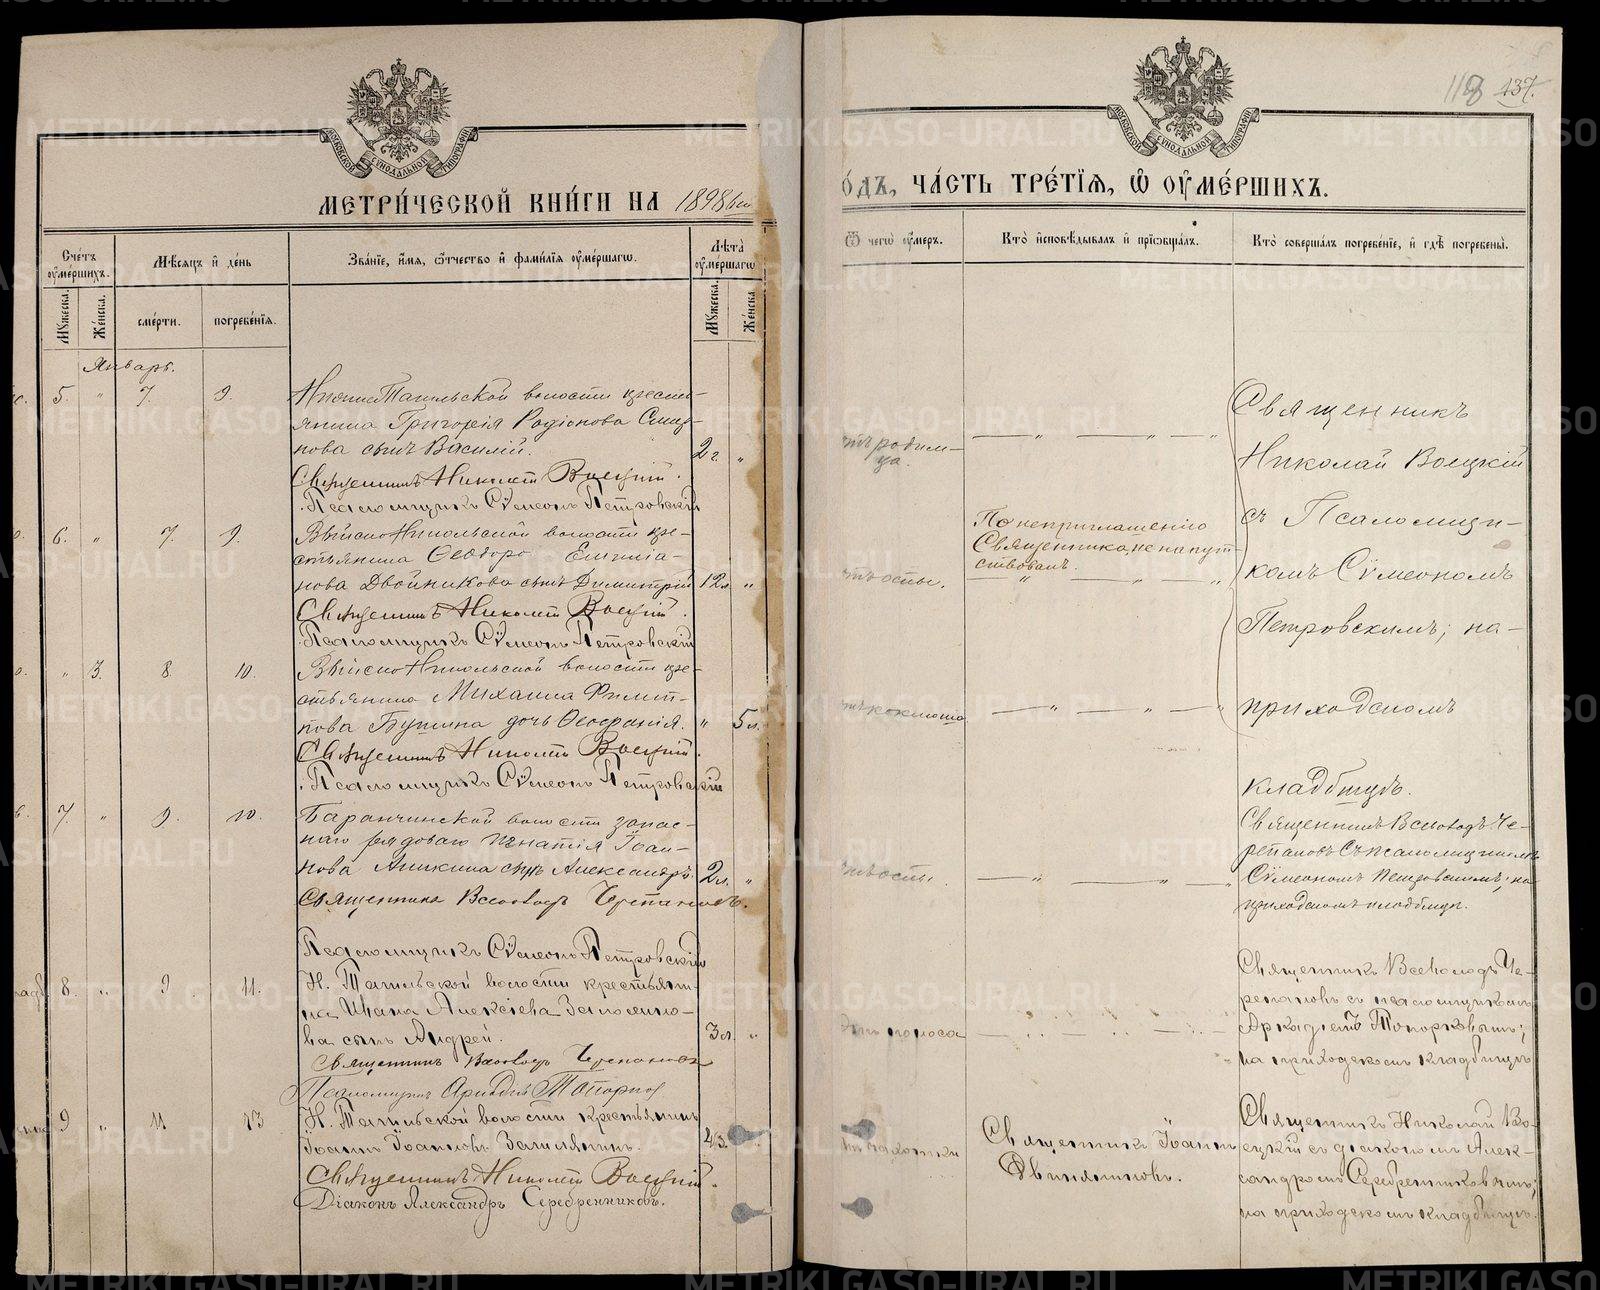 118 137.
МЕТРИ́ЧЕСКОЙ КНИ́ГИ НА 1898й
ОДЪ, ЧА́СТЬ ТРЕ́ТІЯ, Ѿ ОУМЕ́РШИХЪ.
МОСКОВСКОЙ СѴНОДАЛЬНОЙ ТИПОГРАФІИ
МОСКОВСКОЙ СѴНОДАЛЬНОЙ ТИПОГРАФІИ
Сче́тъ оуме́ршихъ.
Мꙋжеска.
Же́нска.
Мѣсяцъ и де́нь
сме́рти.
погребе́нїя.
Зва́нїе, и́мя, ѻ҆́тчество и фами́лїя оуме́ршагѡ.
Лѣ́та оуме́ршагѡ
Мꙋжеска.
Же́нска.
Ѿ чегѡ̀ оу́меръ.
Кто̀ исповѣ́дывалъ и прїѡбща́лъ.
Кто̀ соверша́лъ погребе́нїе, и гдѣ̀ погребены̀.
Январь.
5. " 7. 9.
Нижне Тагильской волости крестья-
янина Григорія Родіонова Смир-
нова сынъ Василій. 2 г. "
Священникъ Николай Воецкій.
Псаломщикъ Сѵмеонъ Петровскій
родим-
ца.
Священникъ
Николай Воецкій
съ Псаломщи-
комъ Сѵмеономъ
Петровскимъ; на-
приходскомъ
кладбищѣ.
6. " 7. 9.
Выйско Никольской волости кре-
стьянина Ѳеодора Емелiа-
нова Двойникова сынъ Димитрій 12 л. "
Священникъ Николай Воецкій.
Псаломщикъ Сѵмеонъ Петровскій
оспы.
По неприглашенію
Священника, не напут-
ствованъ.
" 3. 8. 10.
Выйско Никольской волости кре-
стьянина Михаила Филип-
пова дочь " 5 л.
Священникъ Николай Воецкій.
Псаломщикъ Сѵмеонъ Петровскій
коклюша
7. " 9. 10.
Баранчинской волости запас-
наго рядоваго Игнатія Іоан-
нова Аникина сынъ Александръ. 2 л. "
Священника Всеволодъ Черепановъ.
Псаломщикъ Сѵмеонъ Петровскій
оспы.
Священникъ Всеволодъ Че-
репановъ съ псаломщикомъ
Сѵмеономъ Петровскимъ; на
приходскомъ кладбищѣ.
8. " 9. 11.
Н. Тагильской волости крестьяни-
на Ивана Алексѣева
ва сынъ Андрей. 3 л. "
Священникъ Всеволодъ Черепановъ
Псаломщикъ Аркадій Топорков
Священникъ Всеволодъ Че-
репановъ съ псаломщикомъ
Аркадіемъ Топорковымъ;
на приходскомъ кладбищѣ
9 " 11 13
Н. Тагильской волости крестьянинъ
Іоаннъ Іоанновъ 43.
Священникъ Николай Воецкій.
Діаконъ Александръ Серебренниковъ.
чахотки
Священникъ Іоаннъ
Священникъ Николай Во-
ецкій съ діакономъ Алек-
сандромъ Серебренниковымъ;
на приходскомъ кладбищѣ.
METRIKI.GASO-URAL.RU